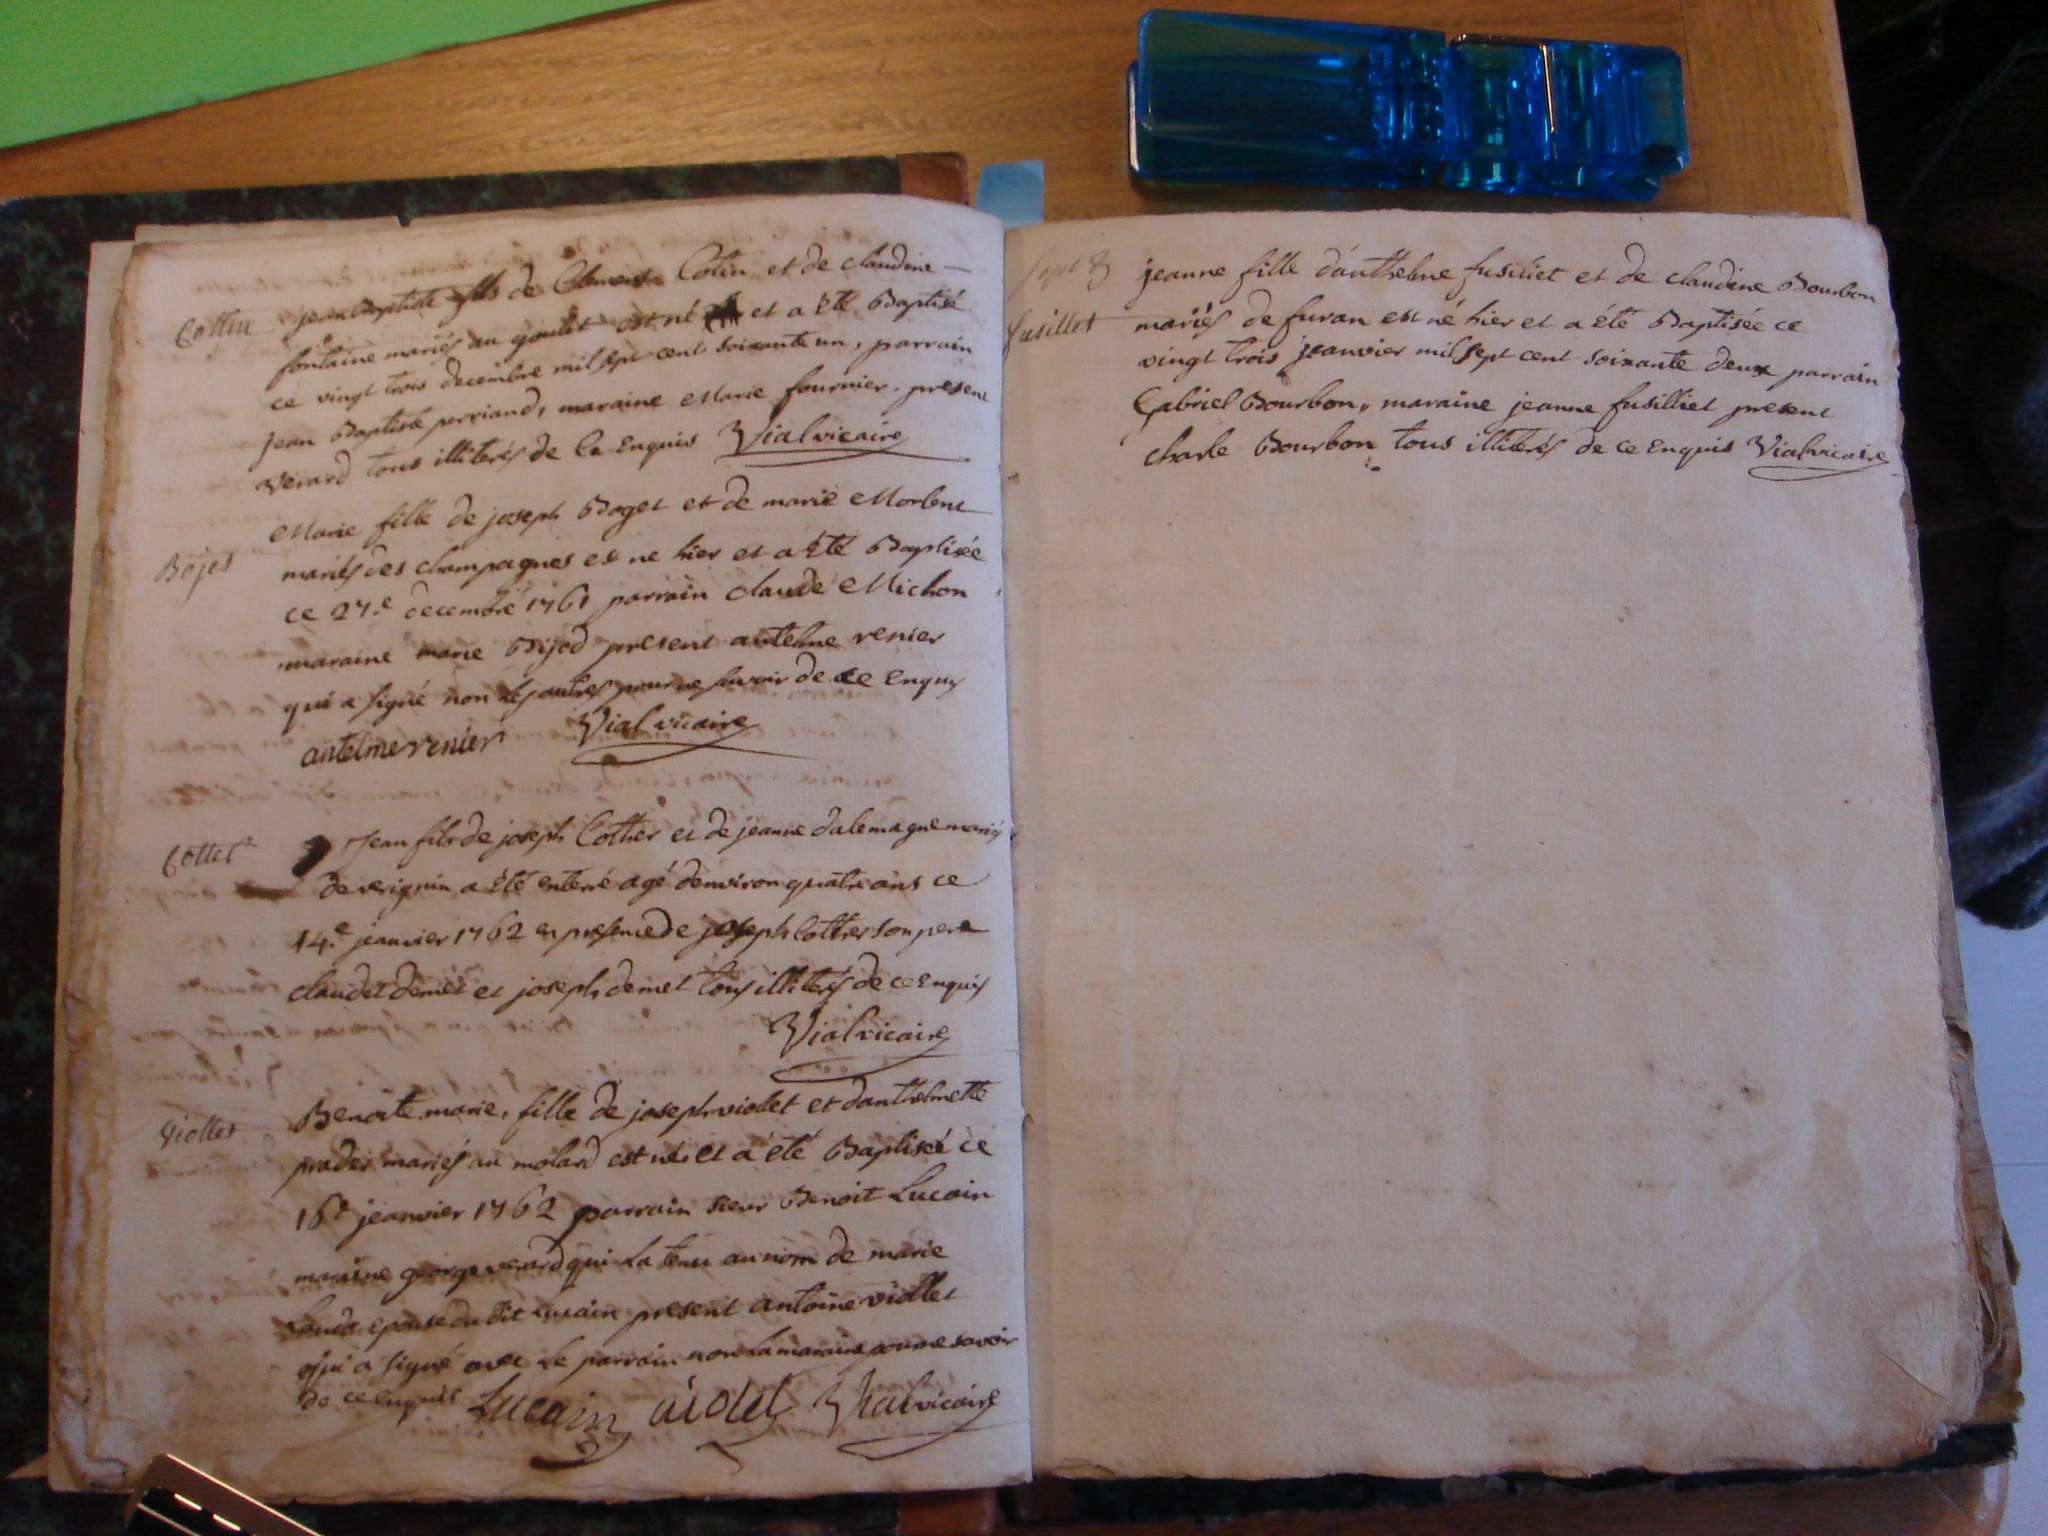 Collin
jean Baptiste fils de Clement Colin et de claudine
fontaine mariés au est né et a été Baptisé
ce vingt trois decembre mil sept cent soixante un, parrain
jean Baptiste perriand, maraine Marie fournier. present
verard tous illiterés de ce Enquis Vial vicaire
Bojes
Marie fille de joseph Boget et de marie Morlent
mariés des champagnes est ne hier et a été Baptisée
ce 27.e decembre 1761 parrain claude Michon
maraine marie Bijod present antelme renier
qui a signé non les autres pour ne savoir de ce Enquis
antelme renier Vial vicaire
Cottet
Jean fils de joseph Cottier et de jeanne dalemagne mariés
de verignin a été enterré agé denviron quatre ans ce
14.e jeanvier 1762 en presence de joseph Cottier son pere
claudet demet et joseph demet tous illiterés de ce Enquis
Vial vicaire
Viollet
Benoite marie, fille de joseph viollet et danthelmette
prader mariés au molard est né et a été Baptiseé ce
16.e jeanvier 1762 parrain sieur Benoit Lucain
maraine george verard qui la tenu au nom de marie
epouse du dit Lucain present antoine viollet
qui a signé avec le parrain non la maraine pour ne savoir
de ce enquis Lucain violet Vial vicaire
fusillet
jeanne fille d'anthelme fusiliet et de claudine Bourbon
mariés de furan est né hier et a été Baptisée ce
vingt trois jeanvier mil sept cent soixante deux parrain
Gabriel Bourbon, maraine jeanne fusilliet present
charle Bourbon tous illiterés de ce Enquis Vial vicaire